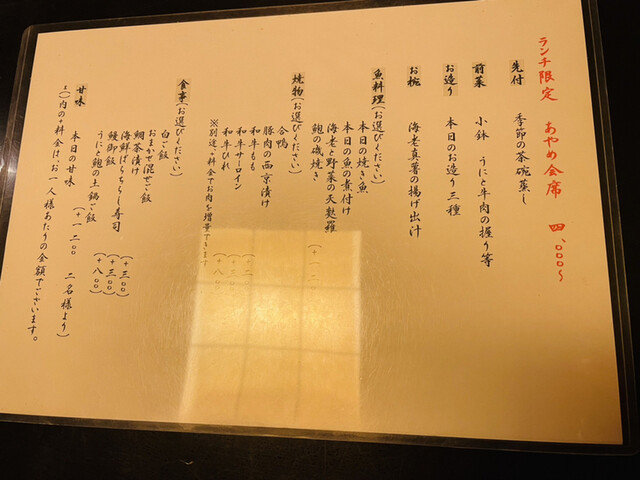 ランチ限定 あやめ会席 四、〇〇〇〜
先付 季節の茶碗蒸し
前菜 小鉢 うにと牛肉の握り等
お造り 本日のお造り三種
お椀 海老真薯の揚げ出汁
魚料理(お選びください)
本日の焼き魚
本日の魚の煮付け
海老と野菜の天麩羅
鮑の磯焼き
焼物(お選びください)
合鴨
豚肉の西京漬け
和牛もも
和牛サーロイン
和牛ひれ (+八〇〇)
※別途、料金でお肉を増量できます
食事(お選びください)
白ご飯
おまかせ混ぜご飯
鯛茶漬け
海鮮ばらちらし寿司 (+三〇〇)
鰻御飯 (+三〇〇)
うにと鮑の土鍋ご飯 (+八〇〇)
甘味 本日の甘味 (+一二〇〇 二名様より)
※( )内の+料金は、お一人様あたりの金額でございます。